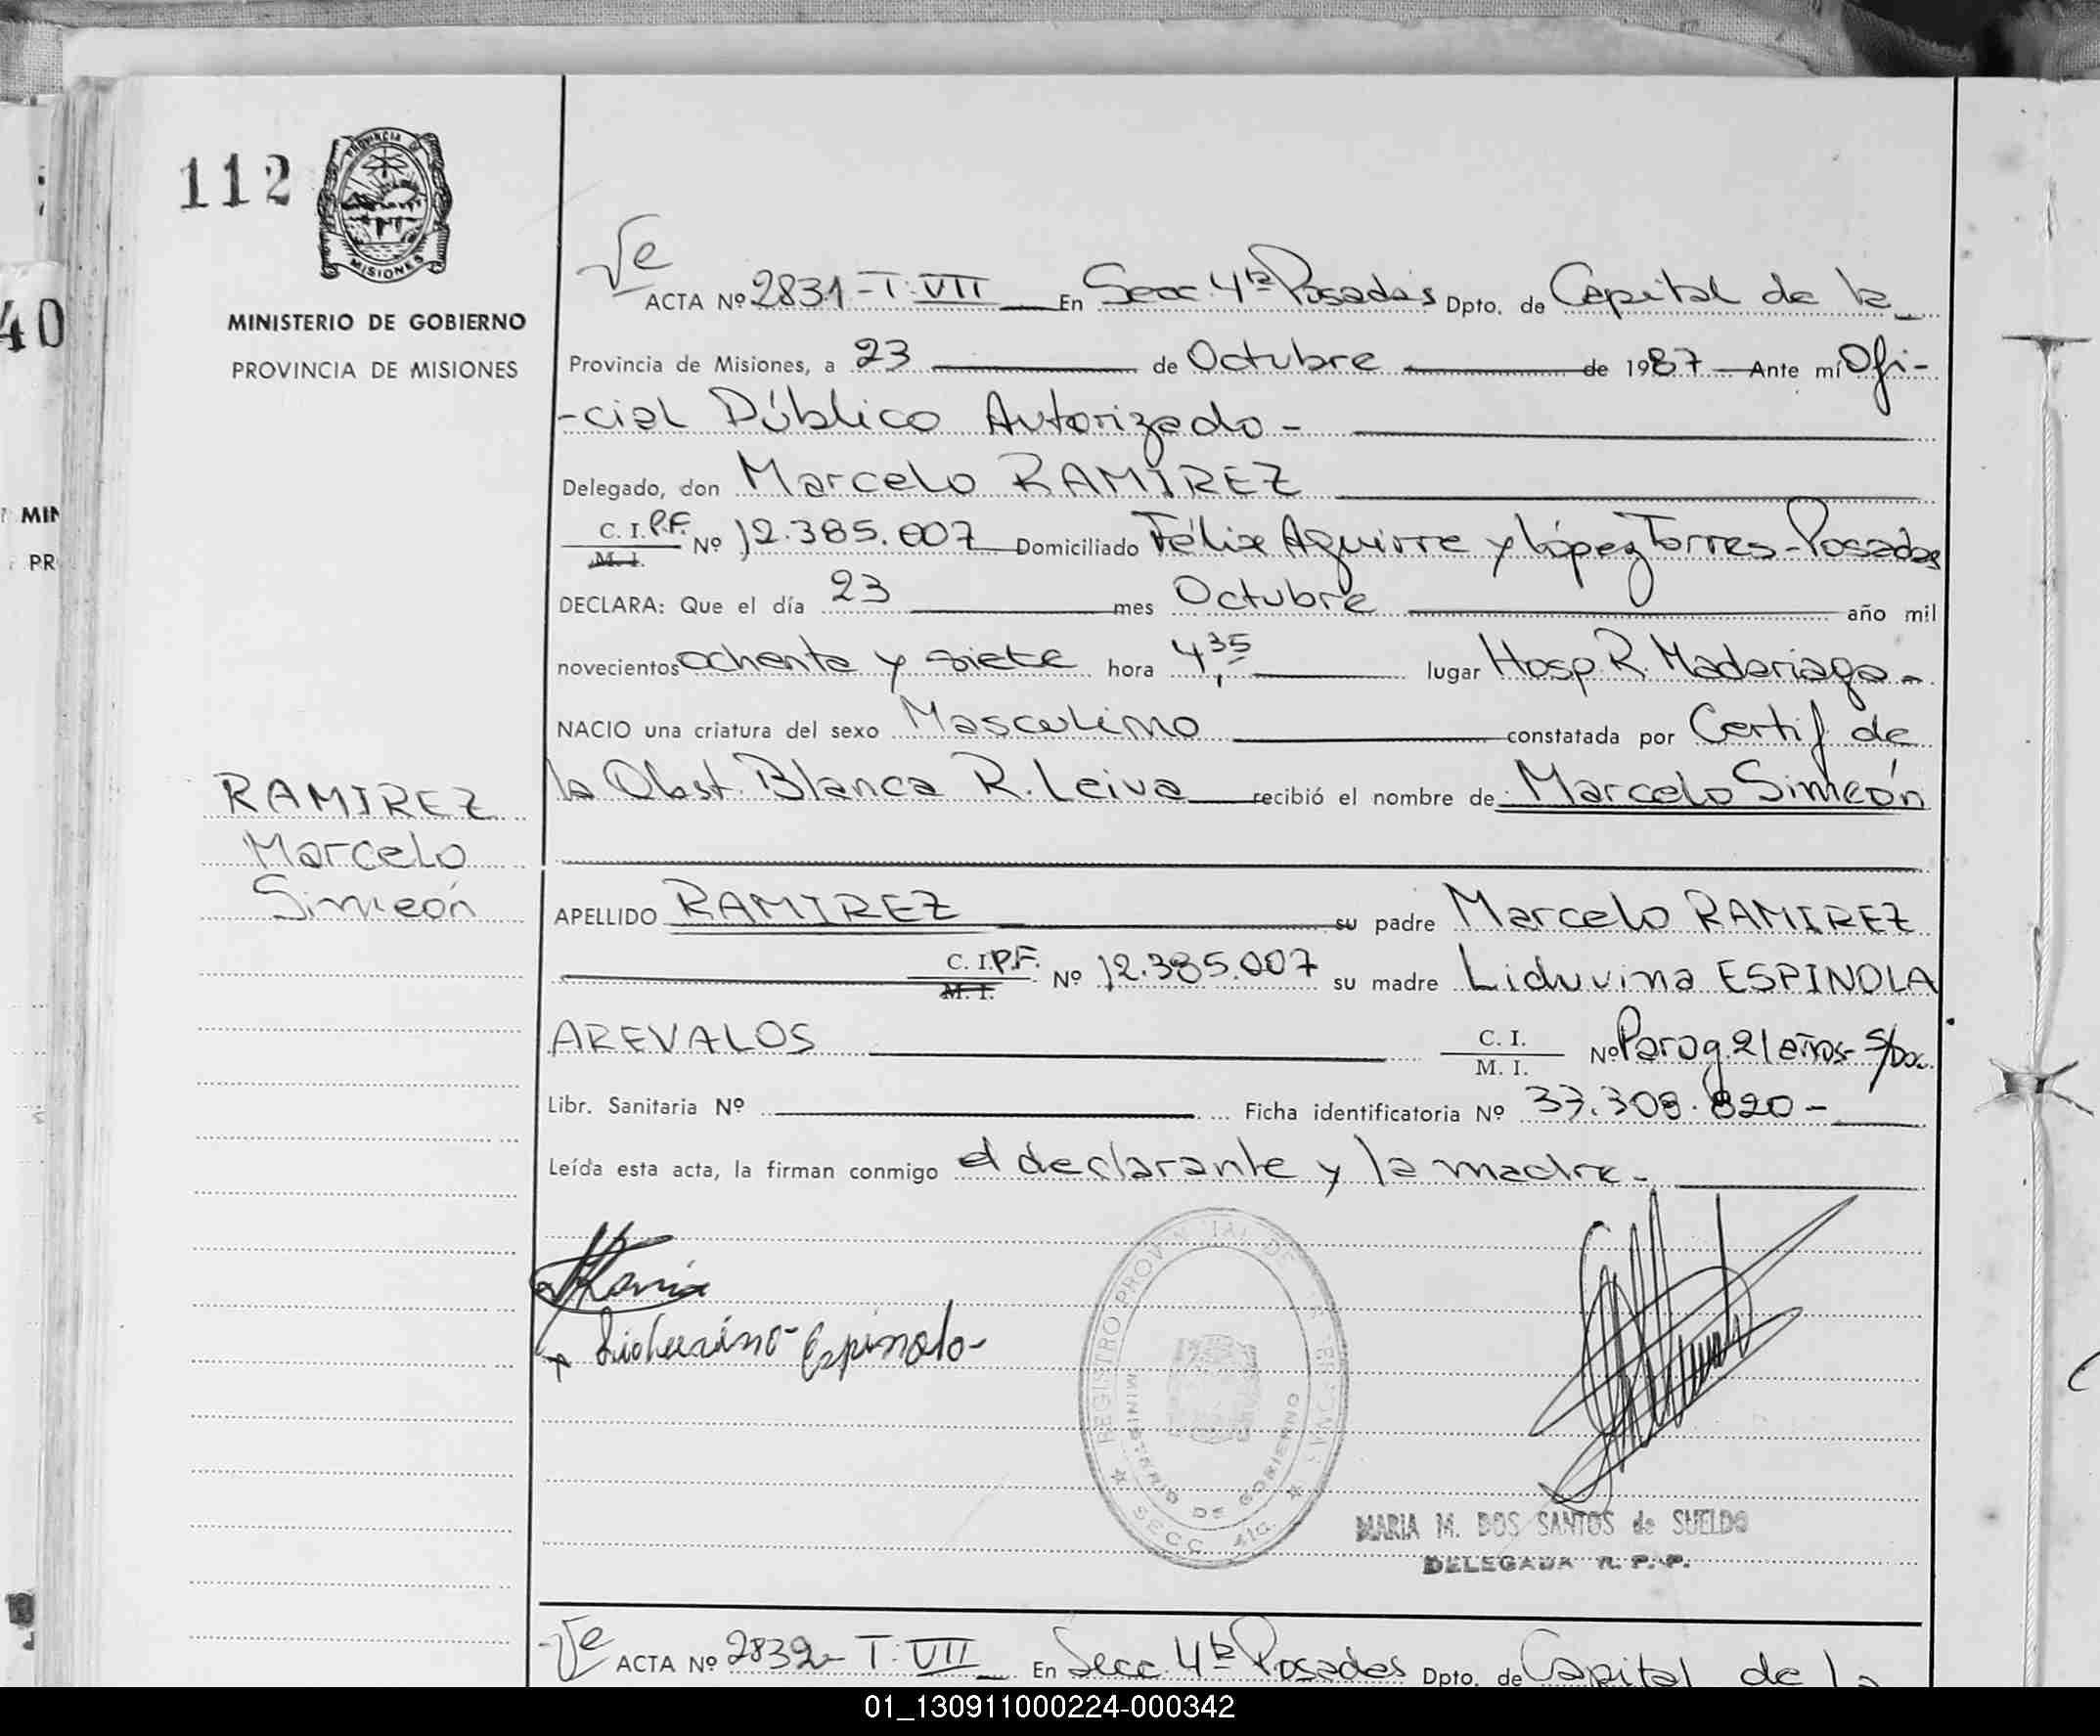 112
PROVINCIA DE
MISIONES
MINISTERIO DE GOBIERNO
PROVINCIA DE MISIONES
40
MIN
PR
ACTA Nº 2831-T:VII En Secc. 4ta Posadas Dpto. de Capital de la
Provincia de Misiones, a 23 de Octubre de 1987 Ante mí Ofi-
-cial Público Autorizado-
Delegado, don Marcelo RAMIREZ
C. I. P.F.
M. I.
Nº 12.385.007 Domiciliado Félix Aguirre y López Torres-Posadas
DECLARA: Que el día 23 mes Octubre año mil
novecientos ochenta y siete hora 4,35 lugar Hosp. R. Madariaga-
NACIO una criatura del sexo Masculino constatada por Certif de
la Obst. Blanca R. Leiva recibió el nombre de Marcelo Simeón
RAMIREZ
Marcelo
Simeón
APELLIDO RAMIREZ su padre Marcelo RAMIREZ
C. I. P.F.
M. I.
Nº 12.385.007 su madre Liduvina ESPINOLA
AREVALOS C. I.
M. I.
Nº Parag. 21 años- S/Doc.
Libr. Sanitaria Nº Ficha identificatoria Nº 37.308.820-
Leída esta acta, la firman conmigo el declarante y la madre-
Liduvina-Espinola-
REGISTRO PROVINCIAL DE LAS PERSONAS
MINISTERIO DE GOBIERNO
SECC. 4ta.
MARIA M. DOS SANTOS de SUELDO
DELEGADA R. P. P.
ACTA Nº 2832- T:VII En Secc. 4ta Posadas Dpto. de Capital de la
01_130911000224-000342